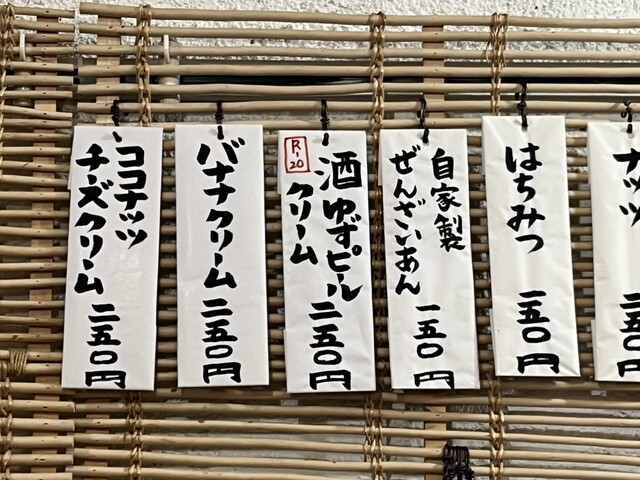 ナッツ
五〇円
はちみつ
一五〇円
自家製
ぜんざいあん
一五〇円
R-20
酒ゆずピル
クリーム
二五〇円
バナナクリーム
二五〇円
ココナッツ
チーズクリーム
二五〇円